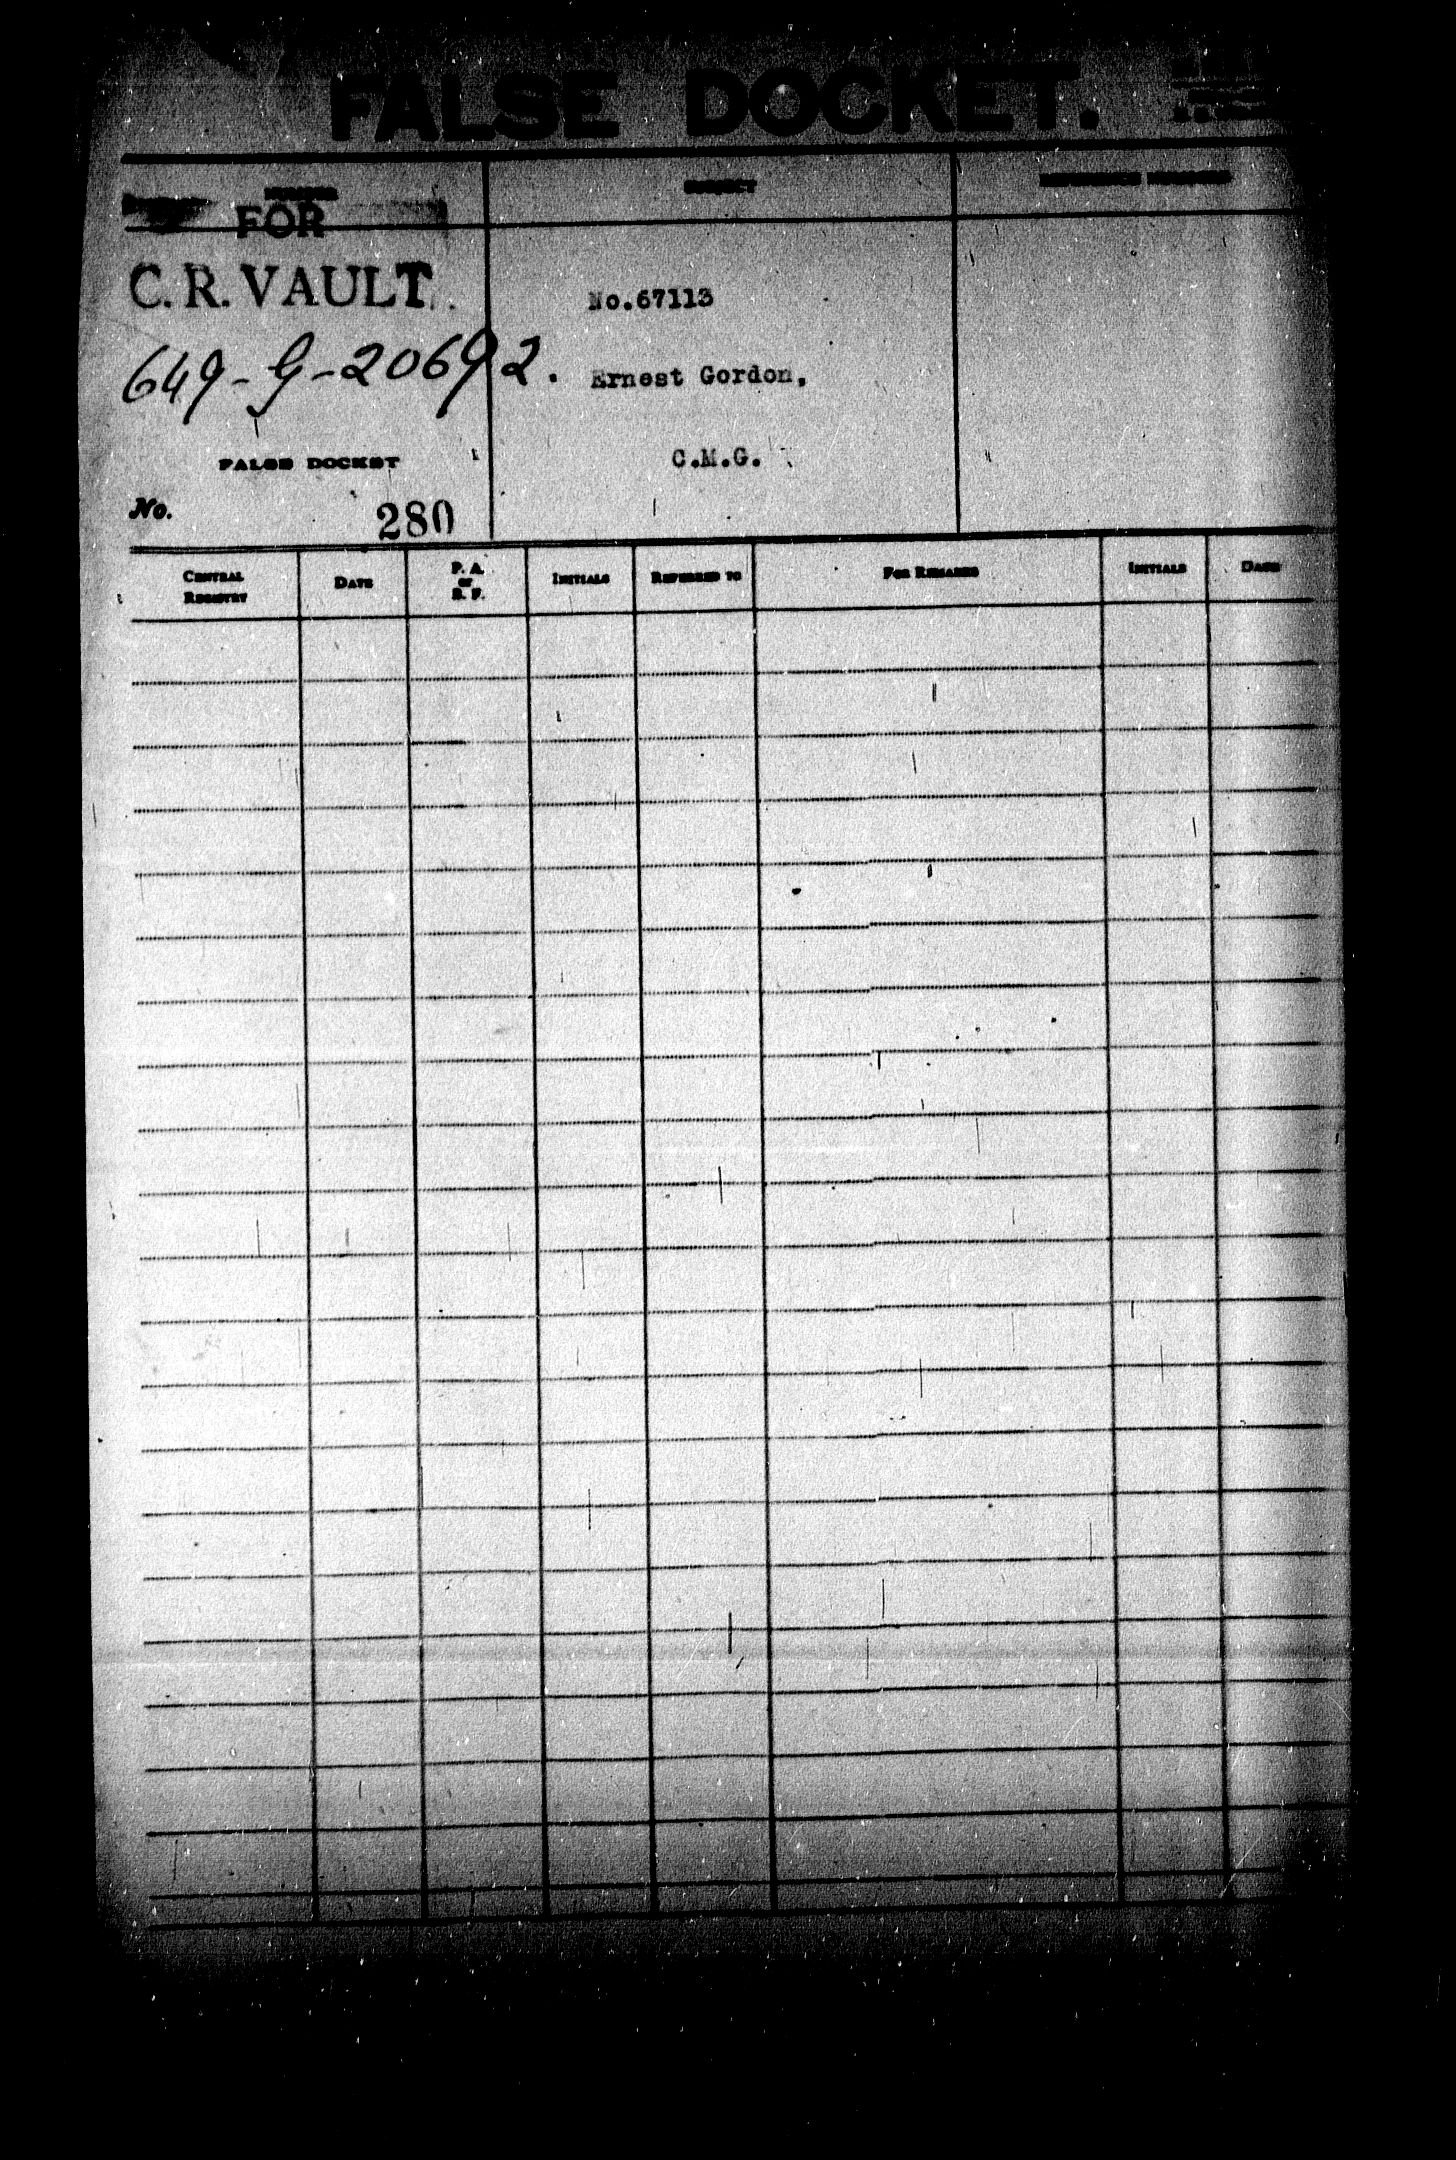 FALSE DOCKET.
NUMBER
SUBJECT
REFERENCE NUMBERS
FOR
C. R. VAULT.
No.67113
649-G-20692.
Ernest Gordon,
FALSE DOCKET
C.M.G.
No. 280
CENTRAL REGISTRY
DATE
P. A. or B. F.
INITIALS
REFERRED TO
FOR REMARKS
INITIALS
DATE